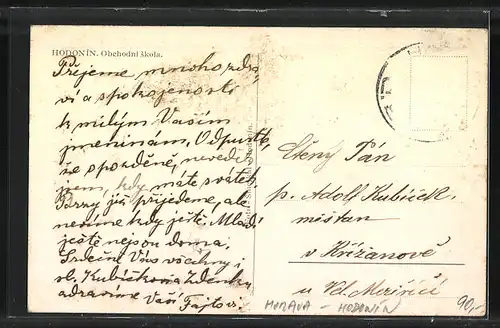 HODONÍN. Obchodní škola.
Přejeme mnoho zdra
ví a spokojenosti
k milým Vaším
jmeninám. Odpusťte,
že spozděně, nevěděl
jsem, kdy máte svátek.
již přijedeme, ale
nevíme kdy ještě. Mladí
ještě nejsou doma.
Srdečně Vás všechny i
sl. Kubíčkovu Zdenku
zdravíme Vaši
Ctěný Pán
p. Adolf Kubíček
měšťan
v Křižanově
u Vel. Meziříčí
MORAVA - HODONÍN
90,-